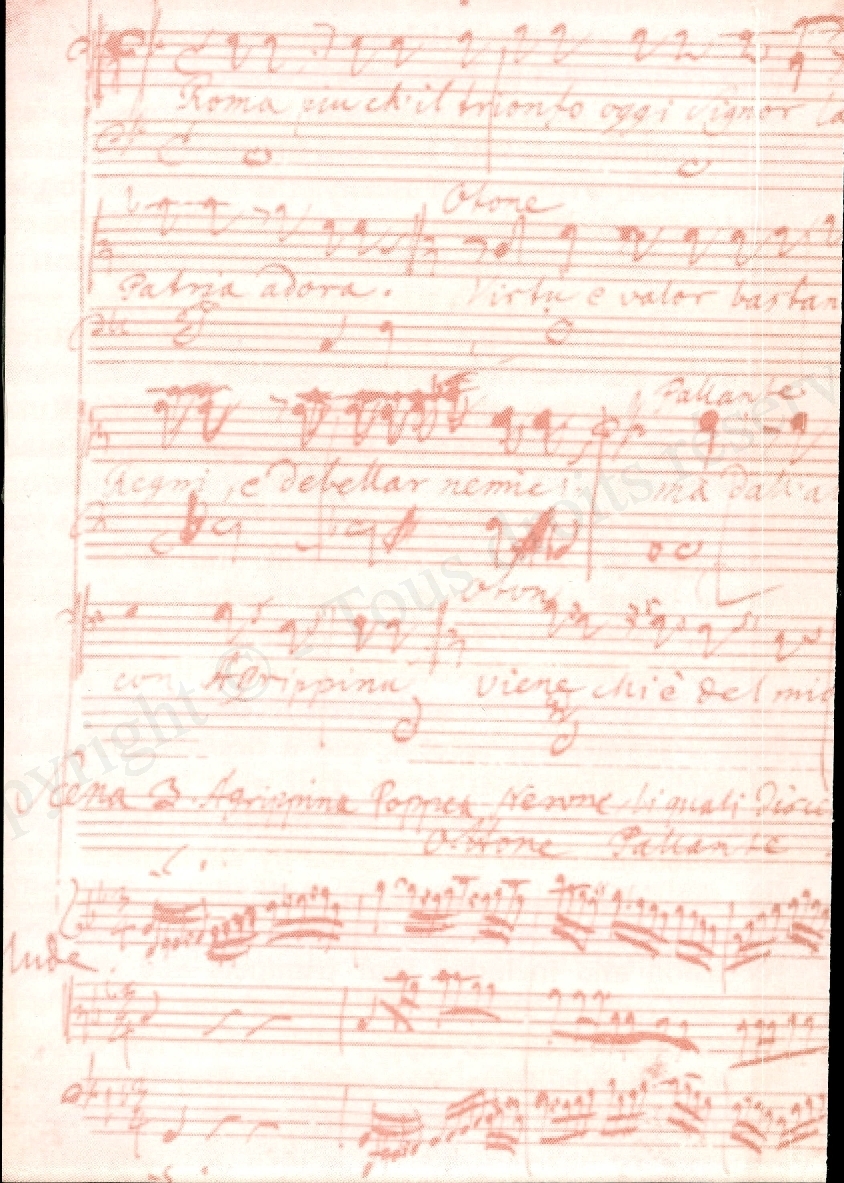 Roma piu ch'il trionfo oggi Signor la
Otone
Patria adora. Virtu e valor bastan
Pallante
Regni, e debellar nemic ma dall'a
Oton
con Agrippina viene chi è del mio
Scena 3. Agrippina Poppea Nerone li quali
Ottone Pallante
lude